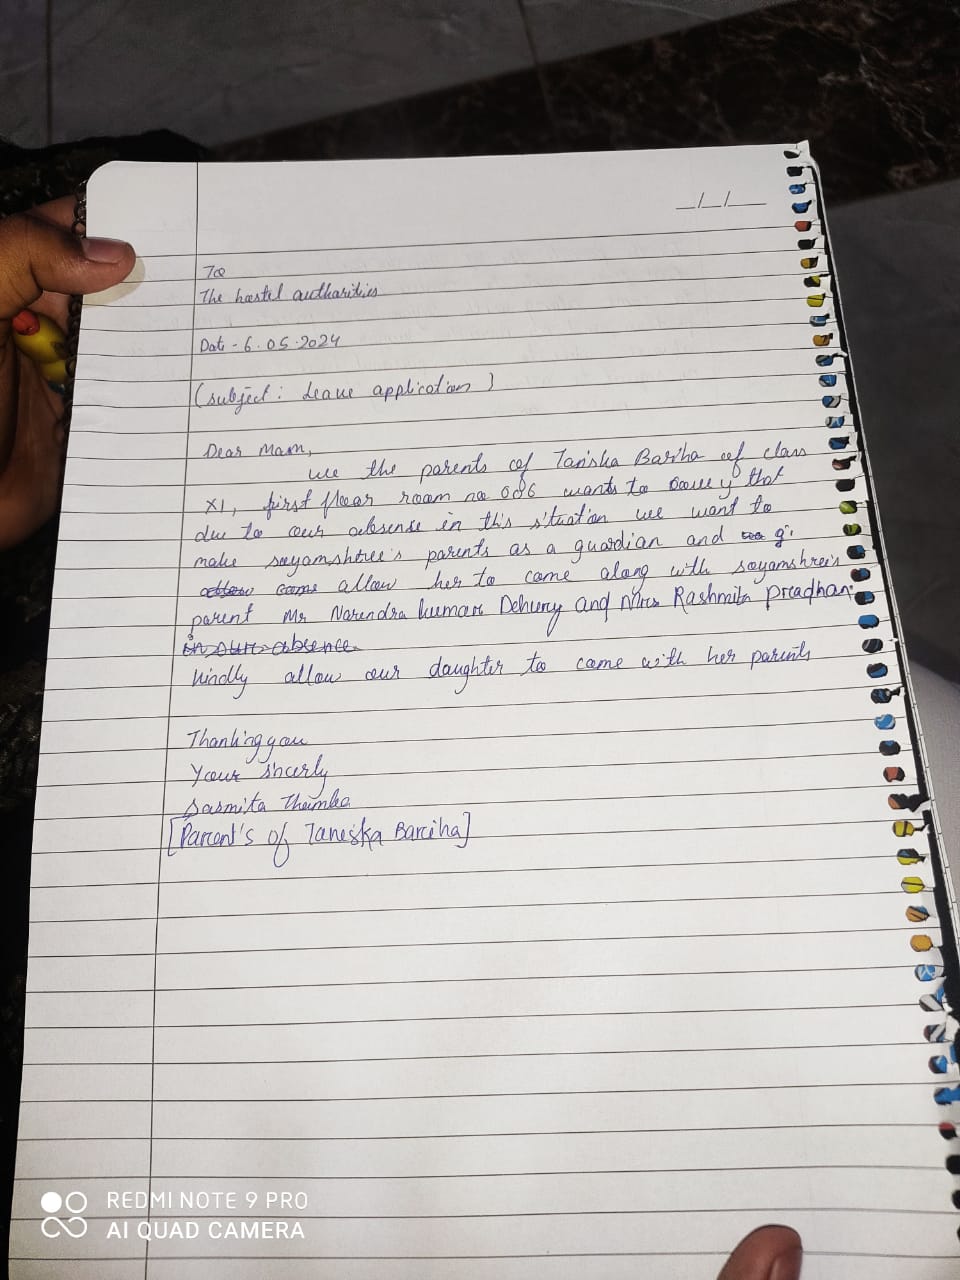 _/_/__
To
The hostel autharities
Date - 6.05.2024
(subject : Leave application )
Dear Mam,
we the parents of Taniska Bariha of class
XI, first floor room no 006 wants to that
due to our absense in this situation we want to
make sayamshree's parents as a guardian and
come allow her to come along with sayamshree's
parent Mr Narendra kumar Dehury and Mrs Rashmita Pradhan.
in our absence
kindly allow our daughter to come with her parents
Thanking you
Your sincerly
Sasmita
[Parent's of Taneska Bariha]
REDMI NOTE 9 PRO
AI QUAD CAMERA